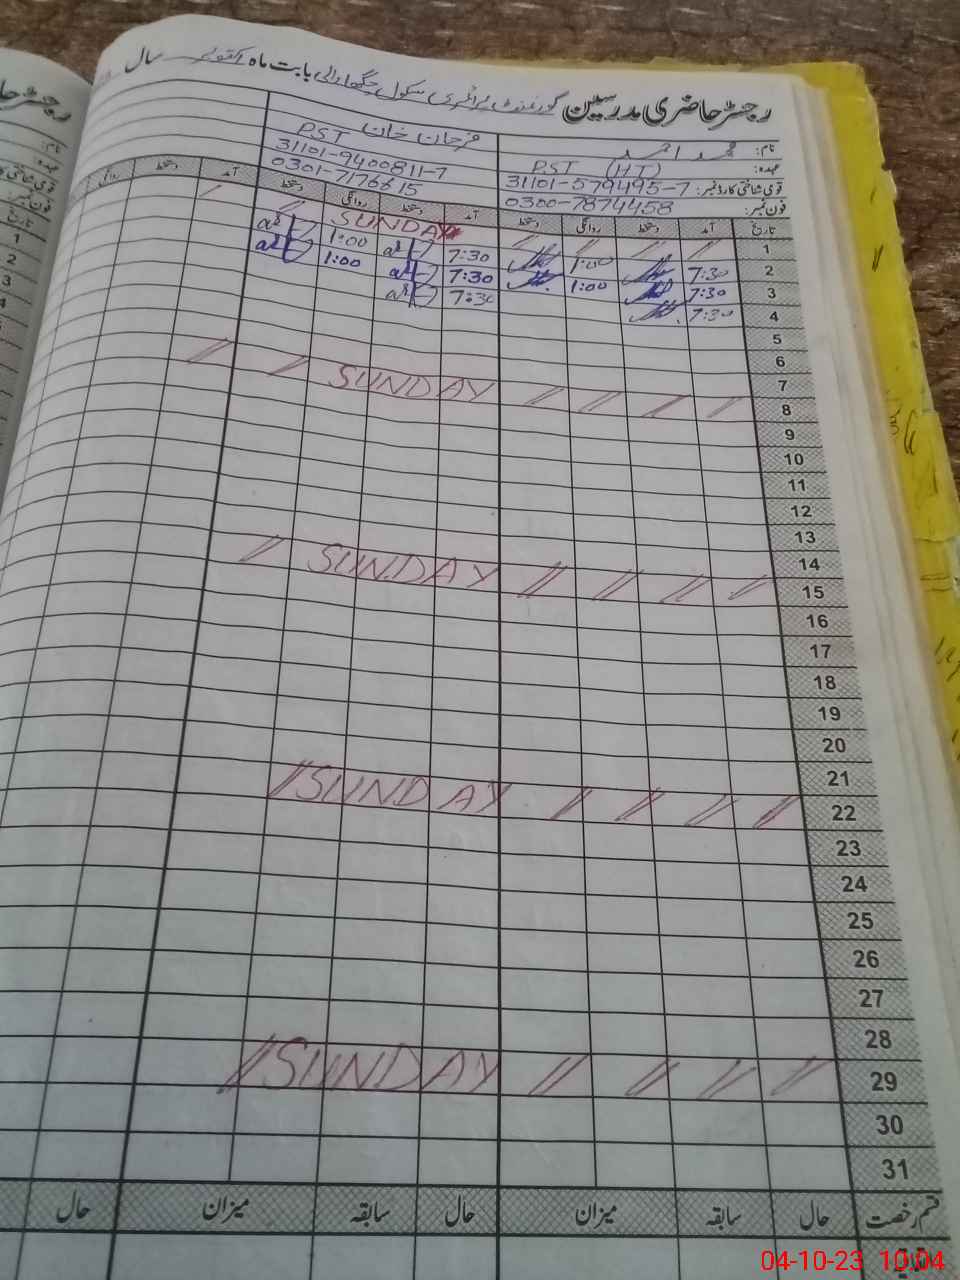 رجسٹر حاضری مدرسین گورنمنٹ پرائمری سکول بابت ماہ اکتوبر سال
نام: محمد احمد فرحان خان
عہدہ: PST (HT) PST
قومی شناختی کارڈ نمبر: 31101-579495-7 31101-9400811-7
فون نمبر: 0300-7874458 0301-7176615
تاریخ آمد دستخط روانگی دستخط آمد دستخط روانگی دستخط آمد دستخط روانگی
1 // // // // SUNDAY // //
2 7:30 1:00 7:30 1:00
3 7:30 1:00 7:30 1:00
4 7:30 7:30
5
6
7
8 // // // // SUNDAY // //
9
10
11
12
13
14
15 // // // // SUNDAY //
16
17
18
19
20
21
22 // // // // SUNDAY //
23
24
25
26
27
28
29 // // // // SUNDAY //
30
31
قسم رخصت حال سابقہ میزان حال سابقہ میزان حال
04-10-23 10:04